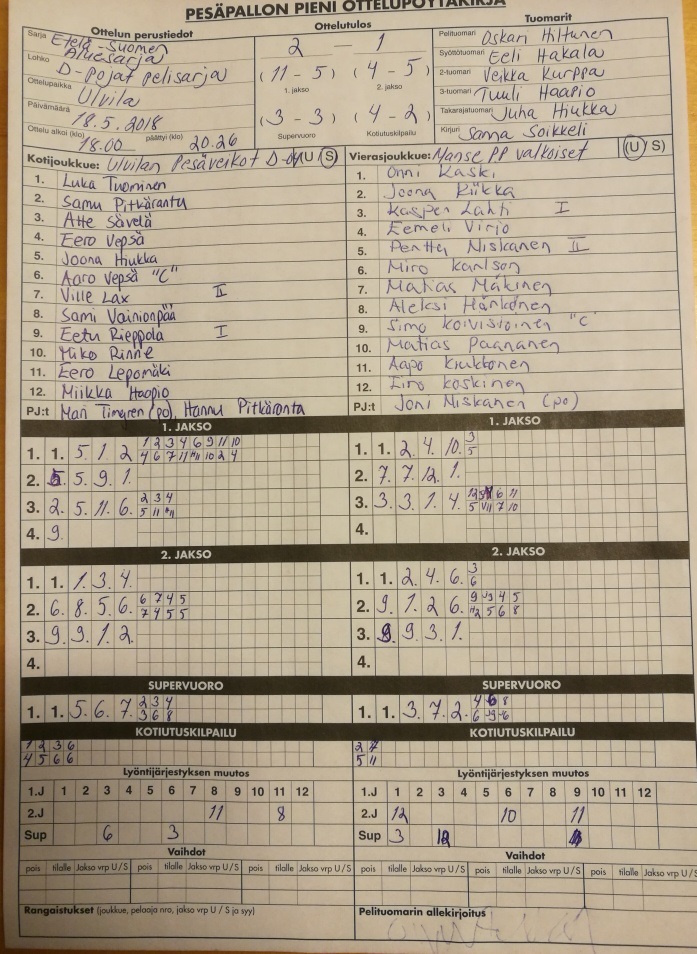 PESÄPALLON PIENI OTTELUPÖYTÄKIRJA
Ottelun perustiedot
Sarja Etelä-Suomen
Aluesarja
Lohko D-Pojat pelisarja
Ottelupaikka Ulvila
Päivämäärä 18.5.2018
Ottelu alkoi (klo) 18.00 päättyi (klo) 20.26
Ottelutulos
2 — 1
(11 - 5) (4 - 5)
1. jakso 2. jakso
(3 - 3) (4 - 2)
Supervuoro Kotiutuskilpailu
Tuomarit
Pelituomari Oskari Hiltunen
Syöttötuomari Eeli Hakala
2-tuomari Veikka Kurppa
3-tuomari Tuuli Haapio
Takarajatuomari Juha Hiukka
Kirjuri Sanna Soikkeli
Kotijoukkue: Ulvilan Pesäveikot (U/S)
1. Luka Tuominen
2. Samu Pitkäranta
3. Atte Sävelä
4. Eero Vepsä
5. Joona Hiukka
6. Aaro Vepsä "C"
7. Ville Lax II
8. Sami Vainionpää
9. Eetu Rieppola I
10. Miko Rinne
11. Eero Lepomäki
12. Miikka Haapio
PJ:t Mari Timgren (po), Hannu Pitkäranta
Vierasjoukkue: Manse PP valkoiset (U/S)
1. Onni Kaski
2. Joona Riikka
3. Kasper Lahti I
4. Eemeli Virjo
5. Penttu Niskanen II
6. Miro Karlson
7. Matias Mäkinen
8. Aleksi Hänkönen
9. Simo Koivistoinen "C"
10. Matias Paananen
11. Aapo Kiukkonen
12. Eino Koskinen
PJ:t Joni Niskanen (po)
1. JAKSO
1. 1. 5. 1. 2 1 2 3 4 6 9 11 10
2. 5. 9. 1.
3. 2. 5. 11. 6. 2 3 4
4. 9.
1. JAKSO
1. 1. 2. 4. 10. 3
5
2. 7. 7. 12. 1.
3. 3. 3. 1. 4.
4.
2. JAKSO
1. 1. 1. 3. 4.
2. 6. 8. 5. 6. 6 7 4 5
7 4 5 5
3. 9. 9. 1. 2.
4.
2. JAKSO
1. 1. 2. 4. 6. 3
6
2. 9. 1. 2 6.
3. 9. 9. 3. 1.
4.
SUPERVUORO
1. 1. 5. 6. 7. 2 3 4
3 6 8
SUPERVUORO
1. 1. 3. 7. 2.
KOTIUTUSKILPAILU
1 2 3 6
4 5 6 6
KOTIUTUSKILPAILU
2 7
5 11
Lyöntijärjestyksen muutos
1.J 1 2 3 4 5 6 7 8 9 10 11 12
2.J 11 8
Sup 6 3
Lyöntijärjestyksen muutos
1.J 1 2 3 4 5 6 7 8 9 10 11 12
2.J 12 10 11
Sup 3
Vaihdot
pois tilalle Jakso vrp U/S pois tilalle Jakso vrp U/S pois tilalle Jakso vrp U/S
Vaihdot
pois tilalle Jakso vrp U/S pois tilalle Jakso vrp U/S pois tilalle Jakso vrp U/S
Rangaistukset (joukkue, pelaaja nro, jakso vrp U / S ja syy)
Pelituomarin allekirjoitus